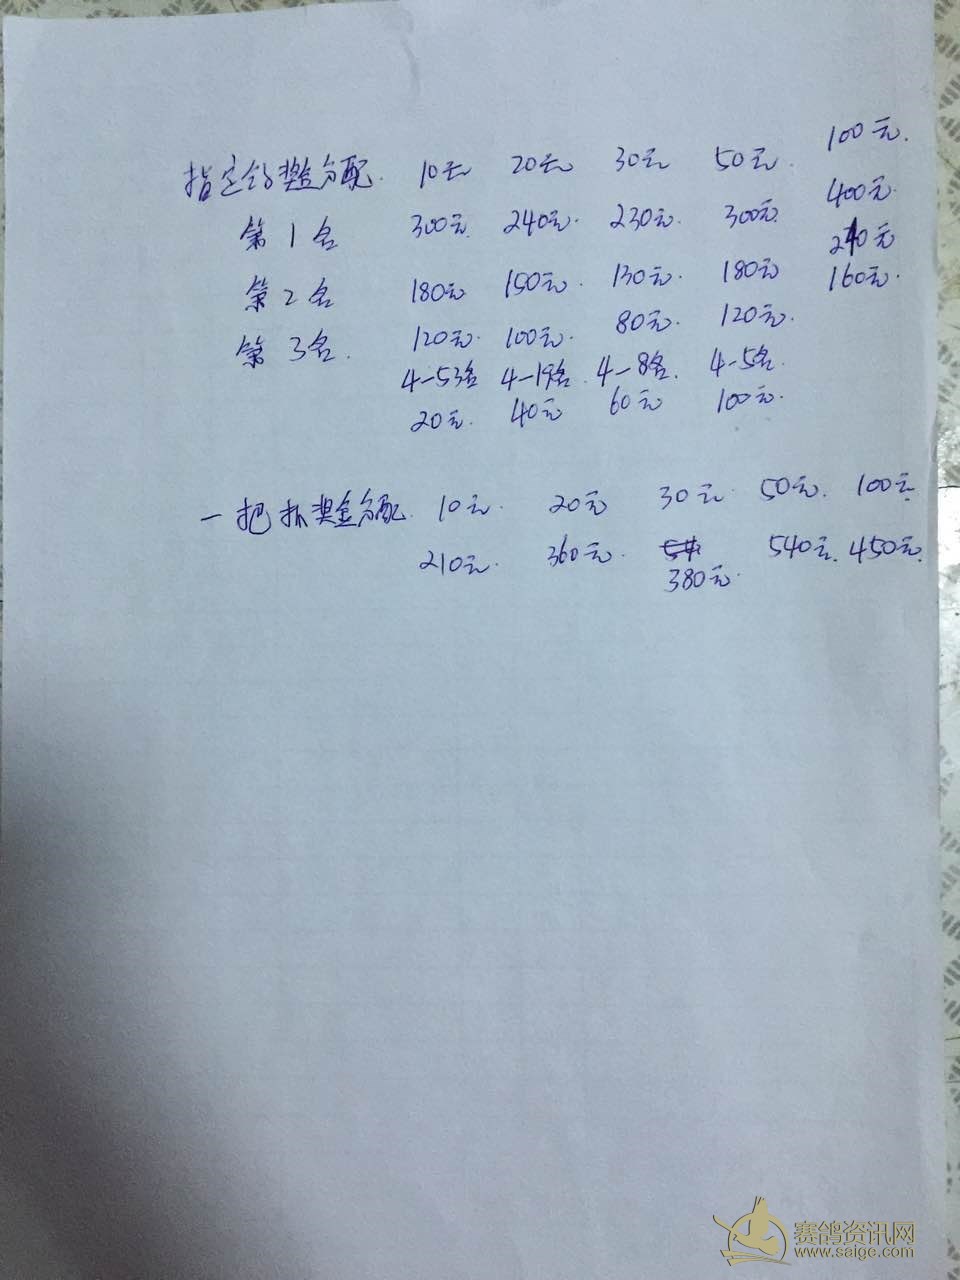 指定鸽奖金分配. 10元 20元 30元 50元. 100元.
第1名 300元. 240元. 230元. 300元. 400元.
第2名 180元 150元. 130元. 180元 240元
第3名. 120元. 100元. 80元. 120元. 160元.
4-53名 4-19名. 4-8名. 4-5名.
20元. 40元 60元 100元.
一把抓奖金分配. 10元. 20元 30元. 50元. 100元
210元. 360元. 540元. 450元.
380元.
赛鸽资讯网
www.saige.com